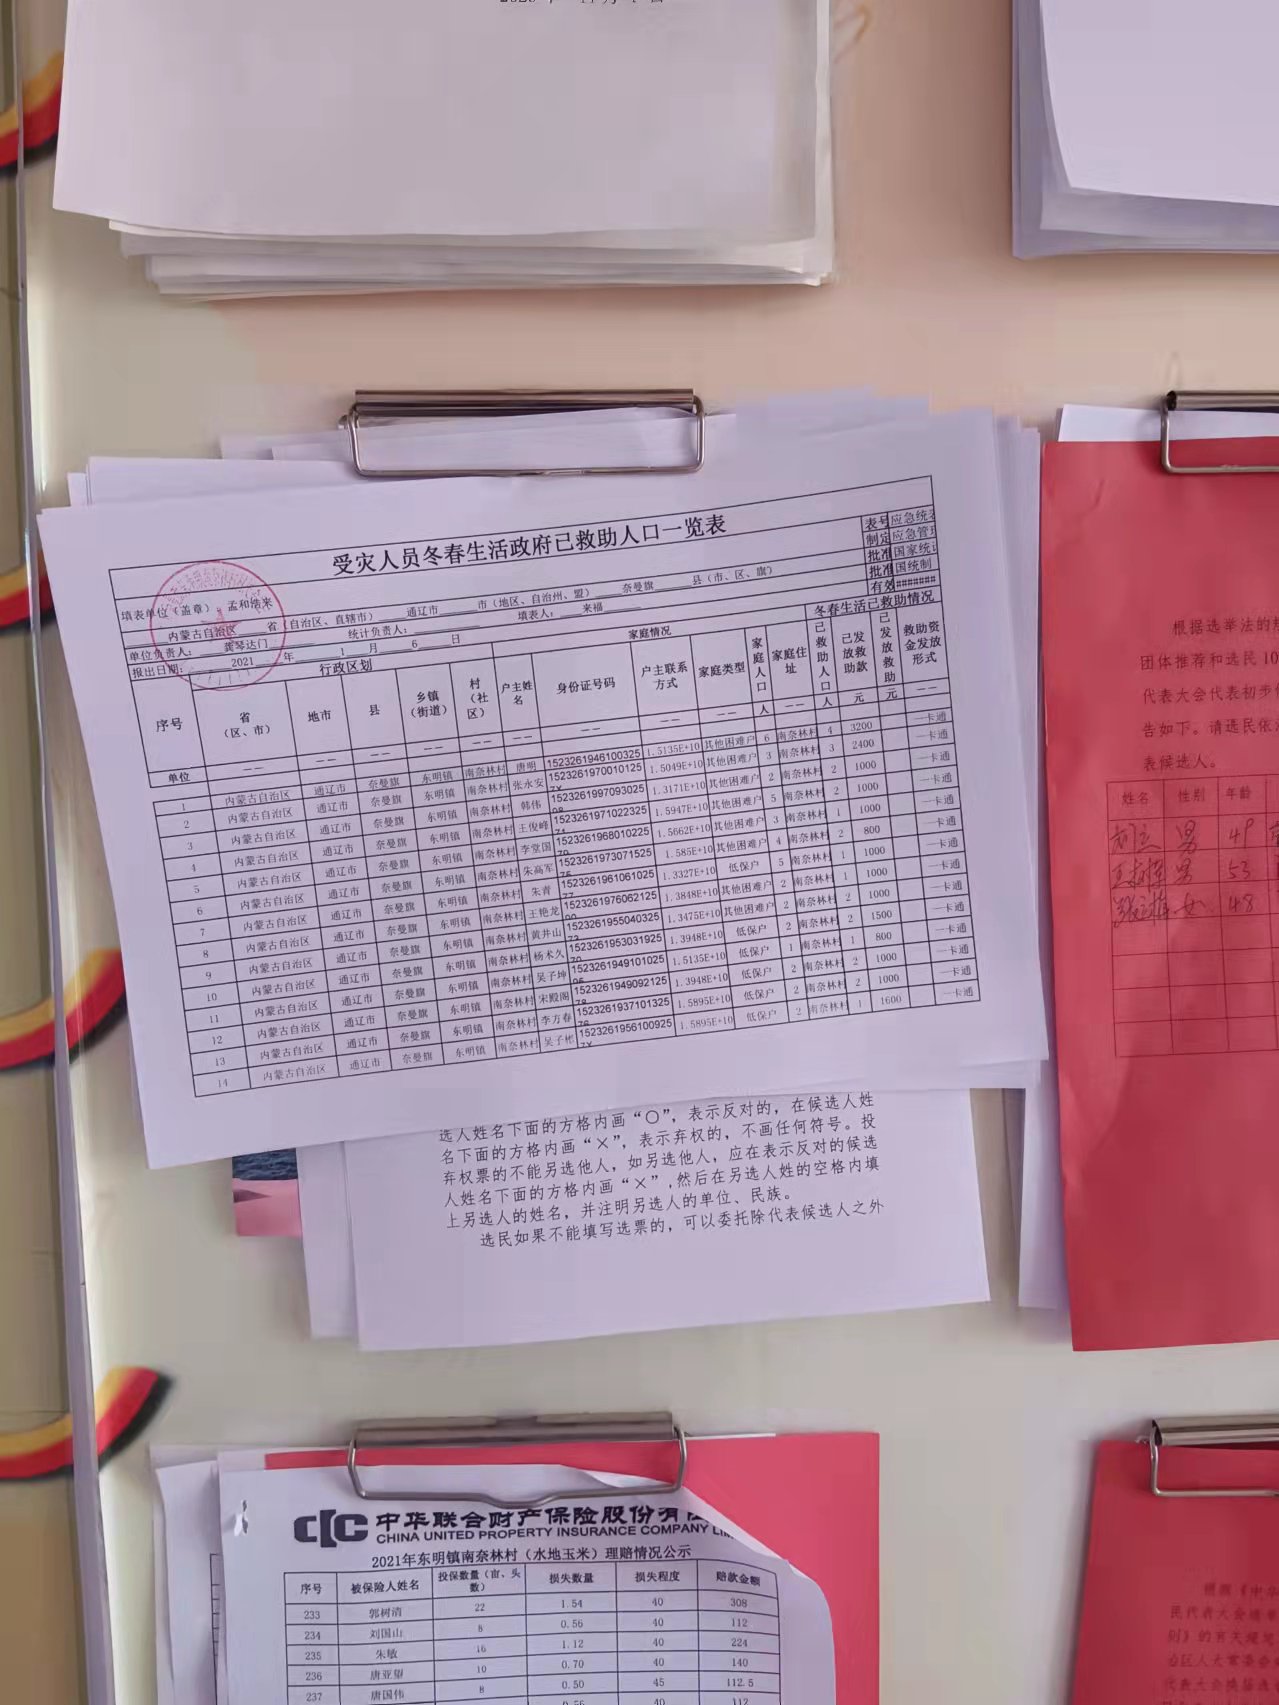 受灾人员冬春生活政府已救助人口一览表
表号 应急统表
制定 应急管理
批准 国家统计
批准 国统制
有效 #######
填表单位（盖章） 孟和浩来
内蒙古自治区 省（自治区、直辖市） 通辽市 市（地区、自治州、盟） 奈曼旗 县（市、区、旗）
单位负责人： 龚琴达门 统计负责人： 填表人： 来福
报出日期： 2021 年 1 月 6 日
行政区划 家庭情况 冬春生活已救助情况
序号 省（区、市） 地市 县 乡镇（街道） 村（社区） 户主姓名 身份证号码 户主联系方式 家庭类型 家庭人口 家庭住址 已救助人口 已发放救助款 已发放救助 救助资金发放形式
单位 —— —— —— —— —— —— —— —— —— 人 —— 人 元 元 ——
1 内蒙古自治区 通辽市 奈曼旗 东明镇 南奈林村 唐明 1523261946100325 1.5135E+10 其他困难户 6 南奈林村 4 3200 一卡通
2 内蒙古自治区 通辽市 奈曼旗 东明镇 南奈林村 张永安 1523261970010125 1.5049E+10 其他困难户 3 南奈林村 3 2400 一卡通
3 内蒙古自治区 通辽市 奈曼旗 东明镇 南奈林村 韩伟 1523261997093025 1.3171E+10 其他困难户 2 南奈林村 2 1000 一卡通
4 内蒙古自治区 通辽市 奈曼旗 东明镇 南奈林村 王俊峰 1523261971022325 1.5947E+10 其他困难户 5 南奈林村 2 1000 一卡通
5 内蒙古自治区 通辽市 奈曼旗 东明镇 南奈林村 李堂国 1523261968010225 1.5662E+10 其他困难户 3 南奈林村 1 1000 一卡通
6 内蒙古自治区 通辽市 奈曼旗 东明镇 南奈林村 朱高军 1523261973071525 1.585E+10 其他困难户 4 南奈林村 2 800 一卡通
7 内蒙古自治区 通辽市 奈曼旗 东明镇 南奈林村 朱青 1523261961061025 1.3327E+10 低保户 5 南奈林村 1 1000 一卡通
8 内蒙古自治区 通辽市 奈曼旗 东明镇 南奈林村 王艳龙 1523261976062125 1.3848E+10 其他困难户 2 南奈林村 1 1000 一卡通
9 内蒙古自治区 通辽市 奈曼旗 东明镇 南奈林村 黄井山 1523261955040325 1.3475E+10 其他困难户 2 南奈林村 2 1000 一卡通
10 内蒙古自治区 通辽市 奈曼旗 东明镇 南奈林村 杨术久 1523261953031925 1.3948E+10 低保户 2 南奈林村 2 1500 一卡通
11 内蒙古自治区 通辽市 奈曼旗 东明镇 南奈林村 吴子坤 1523261949101025 1.5135E+10 低保户 1 南奈林村 1 800 一卡通
12 内蒙古自治区 通辽市 奈曼旗 东明镇 南奈林村 宋殿阁 1523261949092125 1.3948E+10 低保户 2 南奈林村 2 1000 一卡通
13 内蒙古自治区 通辽市 奈曼旗 东明镇 南奈林村 李方春 1523261937101325 1.5895E+10 低保户 2 南奈林村 2 1000 一卡通
14 内蒙古自治区 通辽市 奈曼旗 东明镇 南奈林村 吴子彬 1523261956100925 1.5895E+10 低保户 2 南奈林村 1 1600 一卡通
选人姓名下面的方格内画“○”，表示反对的，在候选人姓
名下面的方格内画“×”，表示弃权的，不画任何符号。投
弃权票的不能另选他人，如另选他人，应在表示反对的候选
人姓名下面的方格内画“×”，然后在另选人姓的空格内填
上另选人的姓名，并注明另选人的单位、民族。
选民如果不能填写选票的，可以委托除代表候选人之外
根据选举法的规
团体推荐和选民 10
代表大会代表初步候
告如下。请选民依法
表候选人。
姓名 性别 年龄
男 49
男 53
女 48
CIC 中华联合财产保险股份有
CHINA UNITED PROPERTY INSURANCE COMPANY
2021年东明镇南奈林村（水地玉米）理赔情况公示
序号 被保险人姓名 投保数量（亩、头数） 损失数量 损失程度 赔款金额
233 郭树清 22 1.54 40 308
234 刘国山 8 0.56 40 112
235 朱敏 16 1.12 40 224
236 唐亚望 10 0.70 40 140
237 唐国伟 8 0.50 45 112.5
0.56 40 112
根据《中华
民代表大会选举
则》的有关规定
治区人大常委会
代表大会换届选